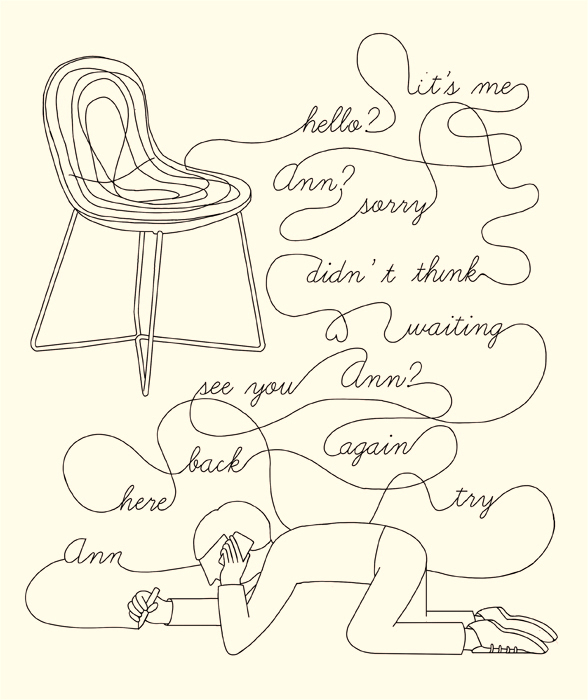 it's me
hello?
Ann?
sorry
didn't think
waiting
see you Ann?
back again
here try
Ann